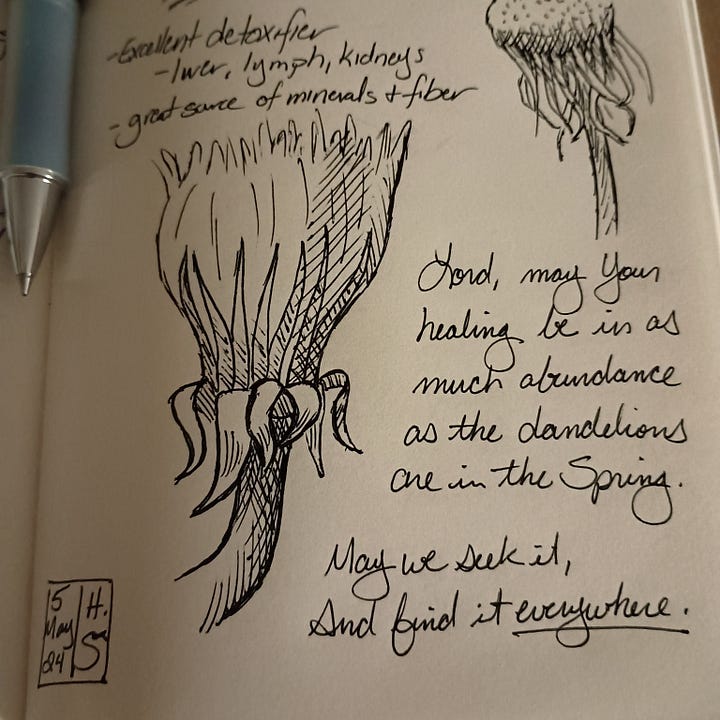 -Excellent detoxifier
-liver, lymph, kidneys
-great source of minerals + fiber
Lord, may Your
healing be in as
much abundance
as the dandelions
are in the Spring.
May we seek it,
And find it everywhere.
5
May
24
H.
S